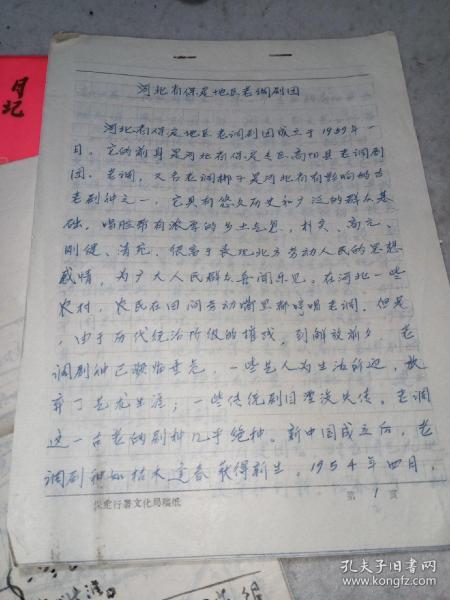 日记
河北省保定地区老调剧团
河北省保定地区老调剧团成立于1959年一
月。它的前身是河北省保定专区高阳县老调剧
团。老调，又名老调梆子是河北省有影响的古
老剧种之一，它具有悠久历史和广泛的群众基
础，唱腔带有浓厚的乡土气息，朴实、高亢、
刚健、清亮，很富于表现北方劳动人民的思想
感情，为广大人民群众喜闻乐见。在河北一些
农村，农民在田间劳动嘴里都哼唱老调。但是
，由于历代统治阶级的摧残，到解放前夕，老
调剧种已濒临垂危，一些艺人为生活所迫，放
弃了艺术生涯；一些传统剧目湮没失传。老调
这一古老的剧种几乎绝种。新中国成立后，老
调剧种如枯木逢春获得新生。1954年四月，
保定行署文化局稿纸
第1页
孔夫子旧书网
www.kongfz.com